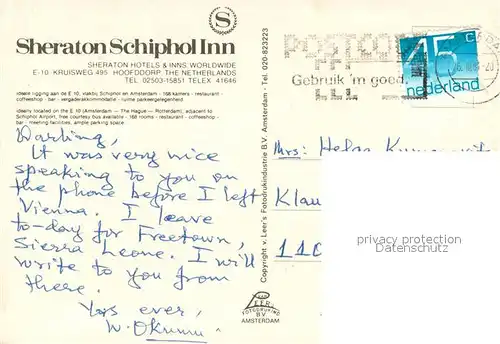 S
Sheraton Schiphol Inn
SHERATON HOTELS & INNS, WORLDWIDE
E-10 KRUISWEG 495 HOOFDDORP, THE NETHERLANDS
TEL. 02503-15851 TELEX 41646
ideale ligging aan de E 10, vlakbij Schiphol en Amsterdam - 168 kamers - restaurant -
coffeeshop - bar - vergaderakkommodatie - ruime parkeergelegenheid
ideally located on the E 10 (Amsterdam — The Hague — Rotterdam), adjacent to
Schiphol Airport, free courtesy bus available - 168 rooms - restaurant - coffeeshop -
bar - meeting facilities, ample parking space
Darling,
It was very nice
speaking to you on
the phone before I left
Vienna. I leave
to-day for Freetown,
Sierra Leone. I will
write to you from
there.
Yrs ever,
W. Okumu
Copyright v. Leer's Fotodrukindustrie B.V. Amsterdam - Tel. 020-823223
VAN
LEER
FOTODRUK IND
B.V.
AMSTERDAM
POSTCODE
Gebruik 'm goed.
45 c
nederland
Mrs: Helen
Klau
110
privacy protection
Datenschutz